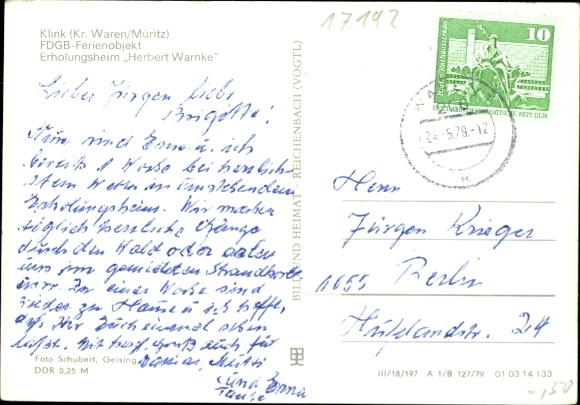 Klink (Kr. Waren/Müritz)
FDGB-Ferienobjekt
Erholungsheim „Herbert Warnke"
17192
10
DEUTSCHE DEMOKRATISCHE REPUBLIK
24.-5.79.-12
Lieber Jürgen, liebe
Brigitte!
Nun sind Erna u. ich
bereits 1 Woche bei herrlich-
stem Wetter im umstehenden
Erholungsheim. Wir machen
täglich herrliche Gänge
durch den Wald oder aalen
uns im gemieteten Strandkorb
In einer Woche sind
wieder zu Hause u. ich hoffe,
daß Ihr Euch einmal sehen
laßt. Mit herzl. Gruß auch für
Mutti
und Erna
Tante
BILD UND HEIMAT REICHENBACH (VOGTL)
Herrn
Jürgen Krieger
1055 Berlin
Hufelandstr. 24
Foto Schubert, Geising
DDR 0,25 M
III/18/197 A 1/B 127/79 01 03 14 133
-,50